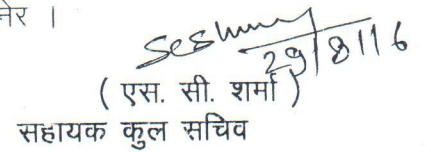 नेर ।
29/8/16
( एस. सी. शर्मा )
सहायक कुल सचिव